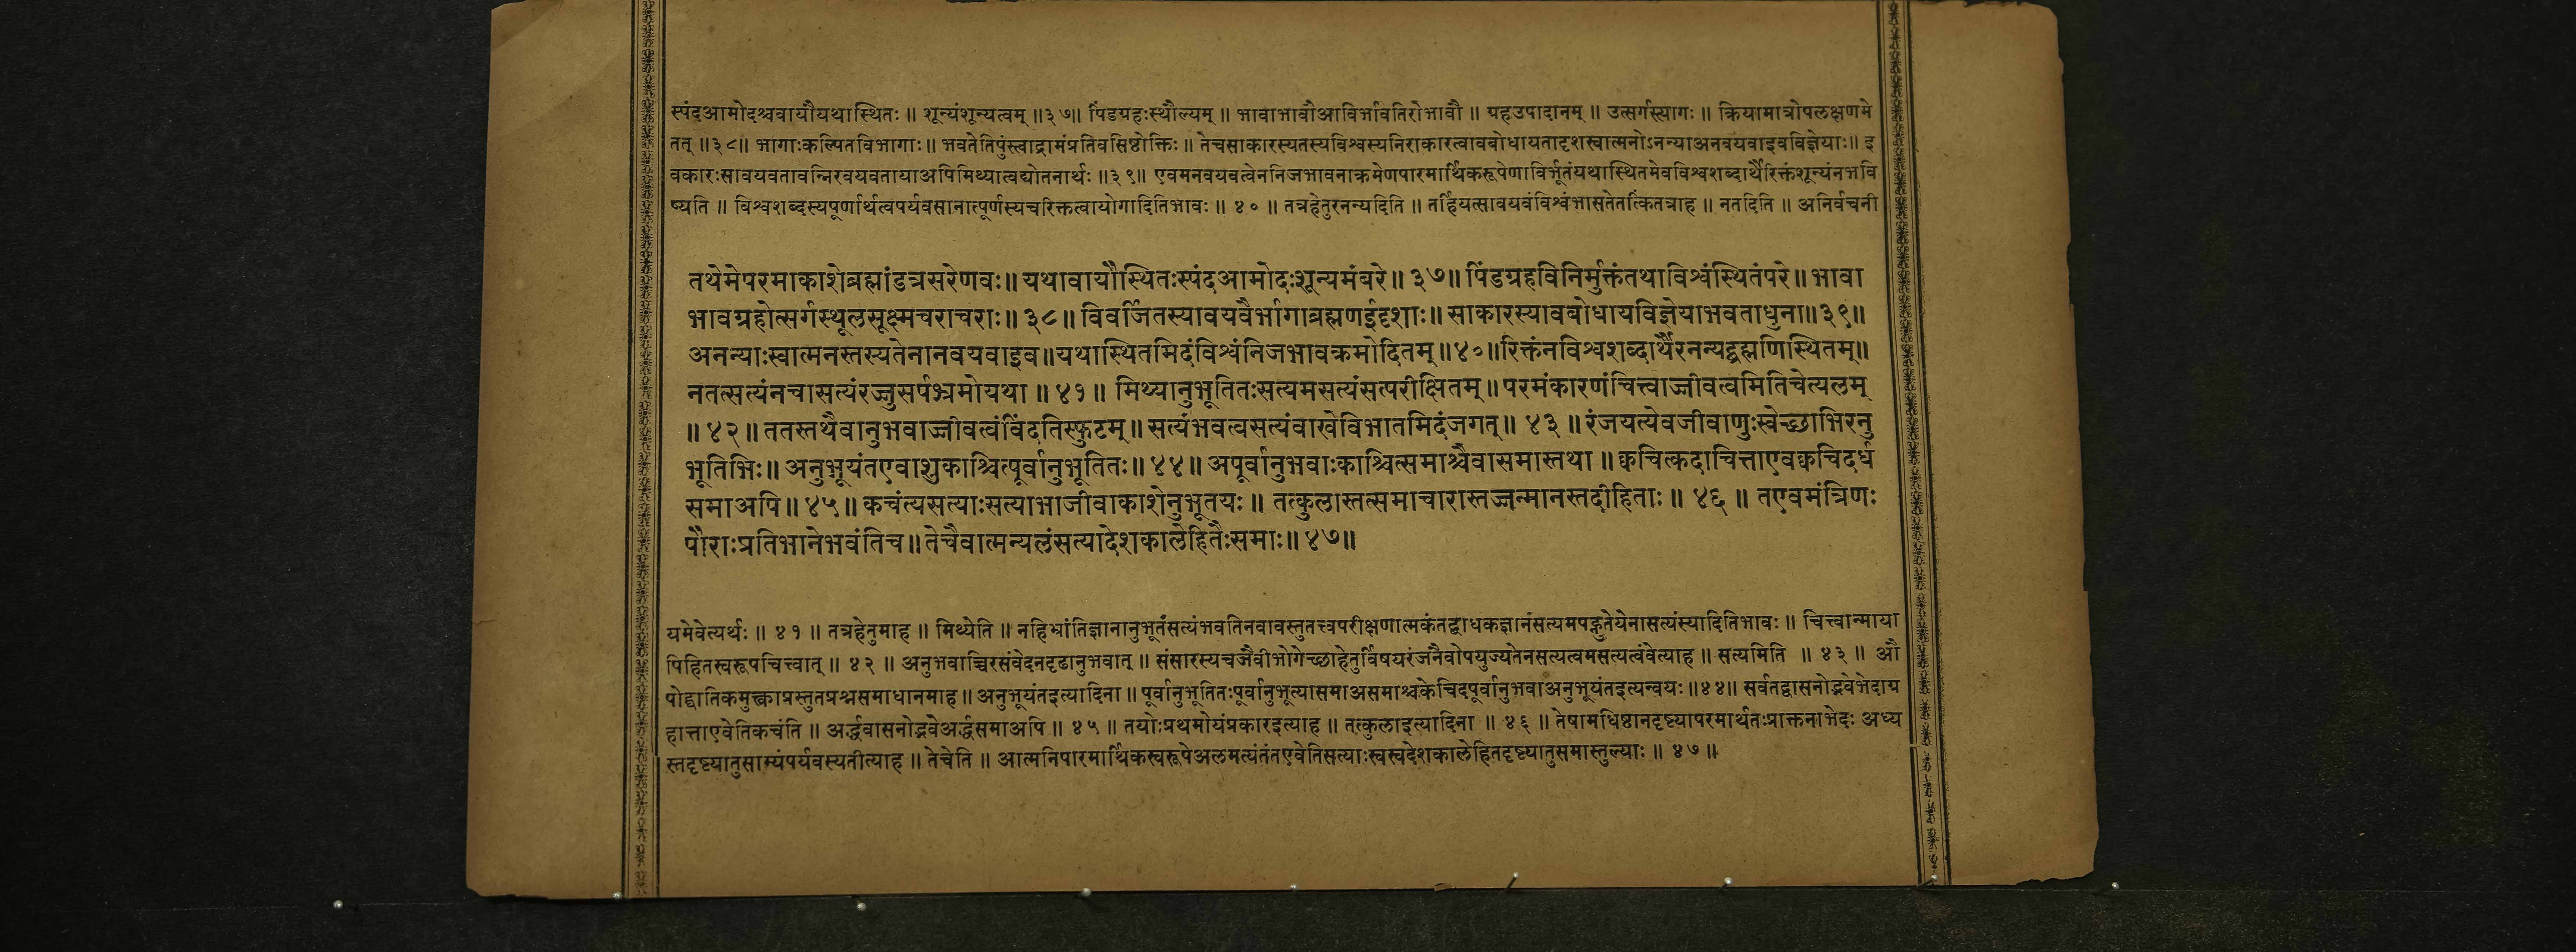 स्पंदआमोदश्चवायौयथास्थितः ॥ शून्यंशून्यत्वम् ॥३७॥ पिंडग्रहःस्थौल्यम् ॥ भावाभावौआविर्भावतिरोभावौ ॥ ग्रहउपादानम् ॥ उत्सर्गस्त्यागः ॥ क्रियामात्रोपलक्षणमे
तत् ॥३८॥ भागाःकल्पितविभागाः ॥ भवतेतिपुंस्त्वाद्रामंप्रतिवसिष्ठोक्तिः ॥ तेचसाकारस्यतस्यविश्वस्यनिराकारत्वावबोधायतादृशस्वात्मनोऽनन्याअनवयवाइवविज्ञेयाः॥ इ
वकारःसावयवतावन्निरवयवतायाअपिमिथ्यात्वद्योतनार्थः ॥३९॥ एवमनवयवत्वेननिजभावनाक्रमेणपारमार्थिकरूपेणाविर्भूतंयथास्थितमेवविश्वशब्दार्थैरिक्तंशून्यंनभवि
ष्यति ॥ विश्वशब्दस्यपूर्णार्थत्वपर्यवसानात्पूर्णस्यचरिक्तत्वायोगादितिभावः ॥ ४० ॥ तत्रहेतुरनन्यदिति ॥ तर्हियत्सावयवंविश्वंभासतेतत्किंतत्राह ॥ नतदिति ॥ अनिर्वचनी
तथेमेपरमाकाशेब्रह्मांडत्रसरेणवः॥ यथावायौस्थितःस्पंदआमोदःशून्यमंबरे॥ ३७॥ पिंडग्रहविनिर्मुक्तंतथाविश्वंस्थितंपरे॥ भावा
भावग्रहोत्सर्गस्थूलसूक्ष्मचराचराः॥ ३८॥ विवर्जितस्यावयवैर्भागाब्रह्मणईदृशाः॥ साकारस्यावबोधायविज्ञेयाभवताधुना॥३९॥
अनन्याःस्वात्मनस्तस्यतेनानवयवाइव॥यथास्थितमिदंविश्वंनिजभावक्रमोदितम्॥४०॥रिक्तंनविश्वशब्दार्थैरनन्यद्ब्रह्मणिस्थितम्॥
नतत्सत्यंनचासत्यंरज्जुसर्पभ्रमोयथा ॥ ४१ ॥ मिथ्यानुभूतितःसत्यमसत्यंसत्परीक्षितम्॥ परमंकारणंचित्त्वाज्जीवत्वमितिचेत्यलम्
॥ ४२ ॥ ततस्तथैवानुभवाज्जीवत्वंविंदतिस्फुटम्॥ सत्यंभवत्वसत्यंवाखेविभातमिदंजगत्॥ ४३ ॥ रंजयत्येवजीवाणुःस्वेच्छाभिरनु
भूतिभिः॥ अनुभूयंतएवाशुकाश्चित्पूर्वानुभूतितः॥ ४४॥ अपूर्वानुभवाःकाश्चित्समाश्चैवासमास्तथा ॥ क्वचित्कदाचित्ताएवक्वचिदर्ध
समाअपि॥ ४५॥ कचंत्यसत्याःसत्याभाजीवाकाशेनुभूतयः॥ तत्कुलास्तत्समाचारास्तज्जन्मानस्तदीहिताः॥ ४६ ॥ तएवमंत्रिणः
पौराःप्रतिभानेभवंतिच॥तेचैवात्मन्यलंसत्यादेशकालेहितैःसमाः॥ ४७॥
यमेवेत्यर्थः ॥ ४१ ॥ तत्रहेतुमाह ॥ मिथ्येति ॥ नहिभ्रांतिज्ञानानुभूतंसत्यंभवतिनवावस्तुतत्त्वपरीक्षणात्मकंतद्बाधकज्ञानंसत्यमपह्नुतेयेनासत्यंस्यादितिभावः ॥ चित्त्वान्माया
पिहितस्वरूपचित्त्वात् ॥ ४२ ॥ अनुभवाच्चिरसंवेदनदृढानुभवात् ॥ संसारस्यचजैवीभोगेच्छाहेतुर्विषयरंजनैवोपयुज्यतेनसत्यत्वमसत्यत्वंवेत्याह ॥ सत्यमिति ॥ ४३ ॥ औ
पोद्घातिकमुक्त्वाप्रस्तुतप्रश्नसमाधानमाह॥ अनुभूयंतइत्यादिना ॥ पूर्वानुभूतितःपूर्वानुभूत्यासमाअसमाश्चकेचिदपूर्वानुभवाअनुभूयंतइत्यन्वयः॥४४॥ सर्वतद्वासनोद्भवेभेदाग्र
हात्ताएवेतिकचंति ॥ अर्द्धवासनोद्भवेअर्द्धसमाअपि ॥ ४५ ॥ तयोःप्रथमोयंप्रकारइत्याह ॥ तत्कुलाइत्यादिना ॥ ४६ ॥ तेषामधिष्ठानदृष्ट्यापरमार्थतःप्राक्तनाभेदः अध्य
स्तदृष्ट्यातुसाम्यंपर्यवस्यतीत्याह ॥ तेचेति ॥ आत्मनिपारमार्थिकस्वरूपेअलमत्यंतंतएवेतिसत्याःस्वस्वदेशकालेहितदृष्ट्यातुसमास्तुल्याः ॥ ४७ ॥